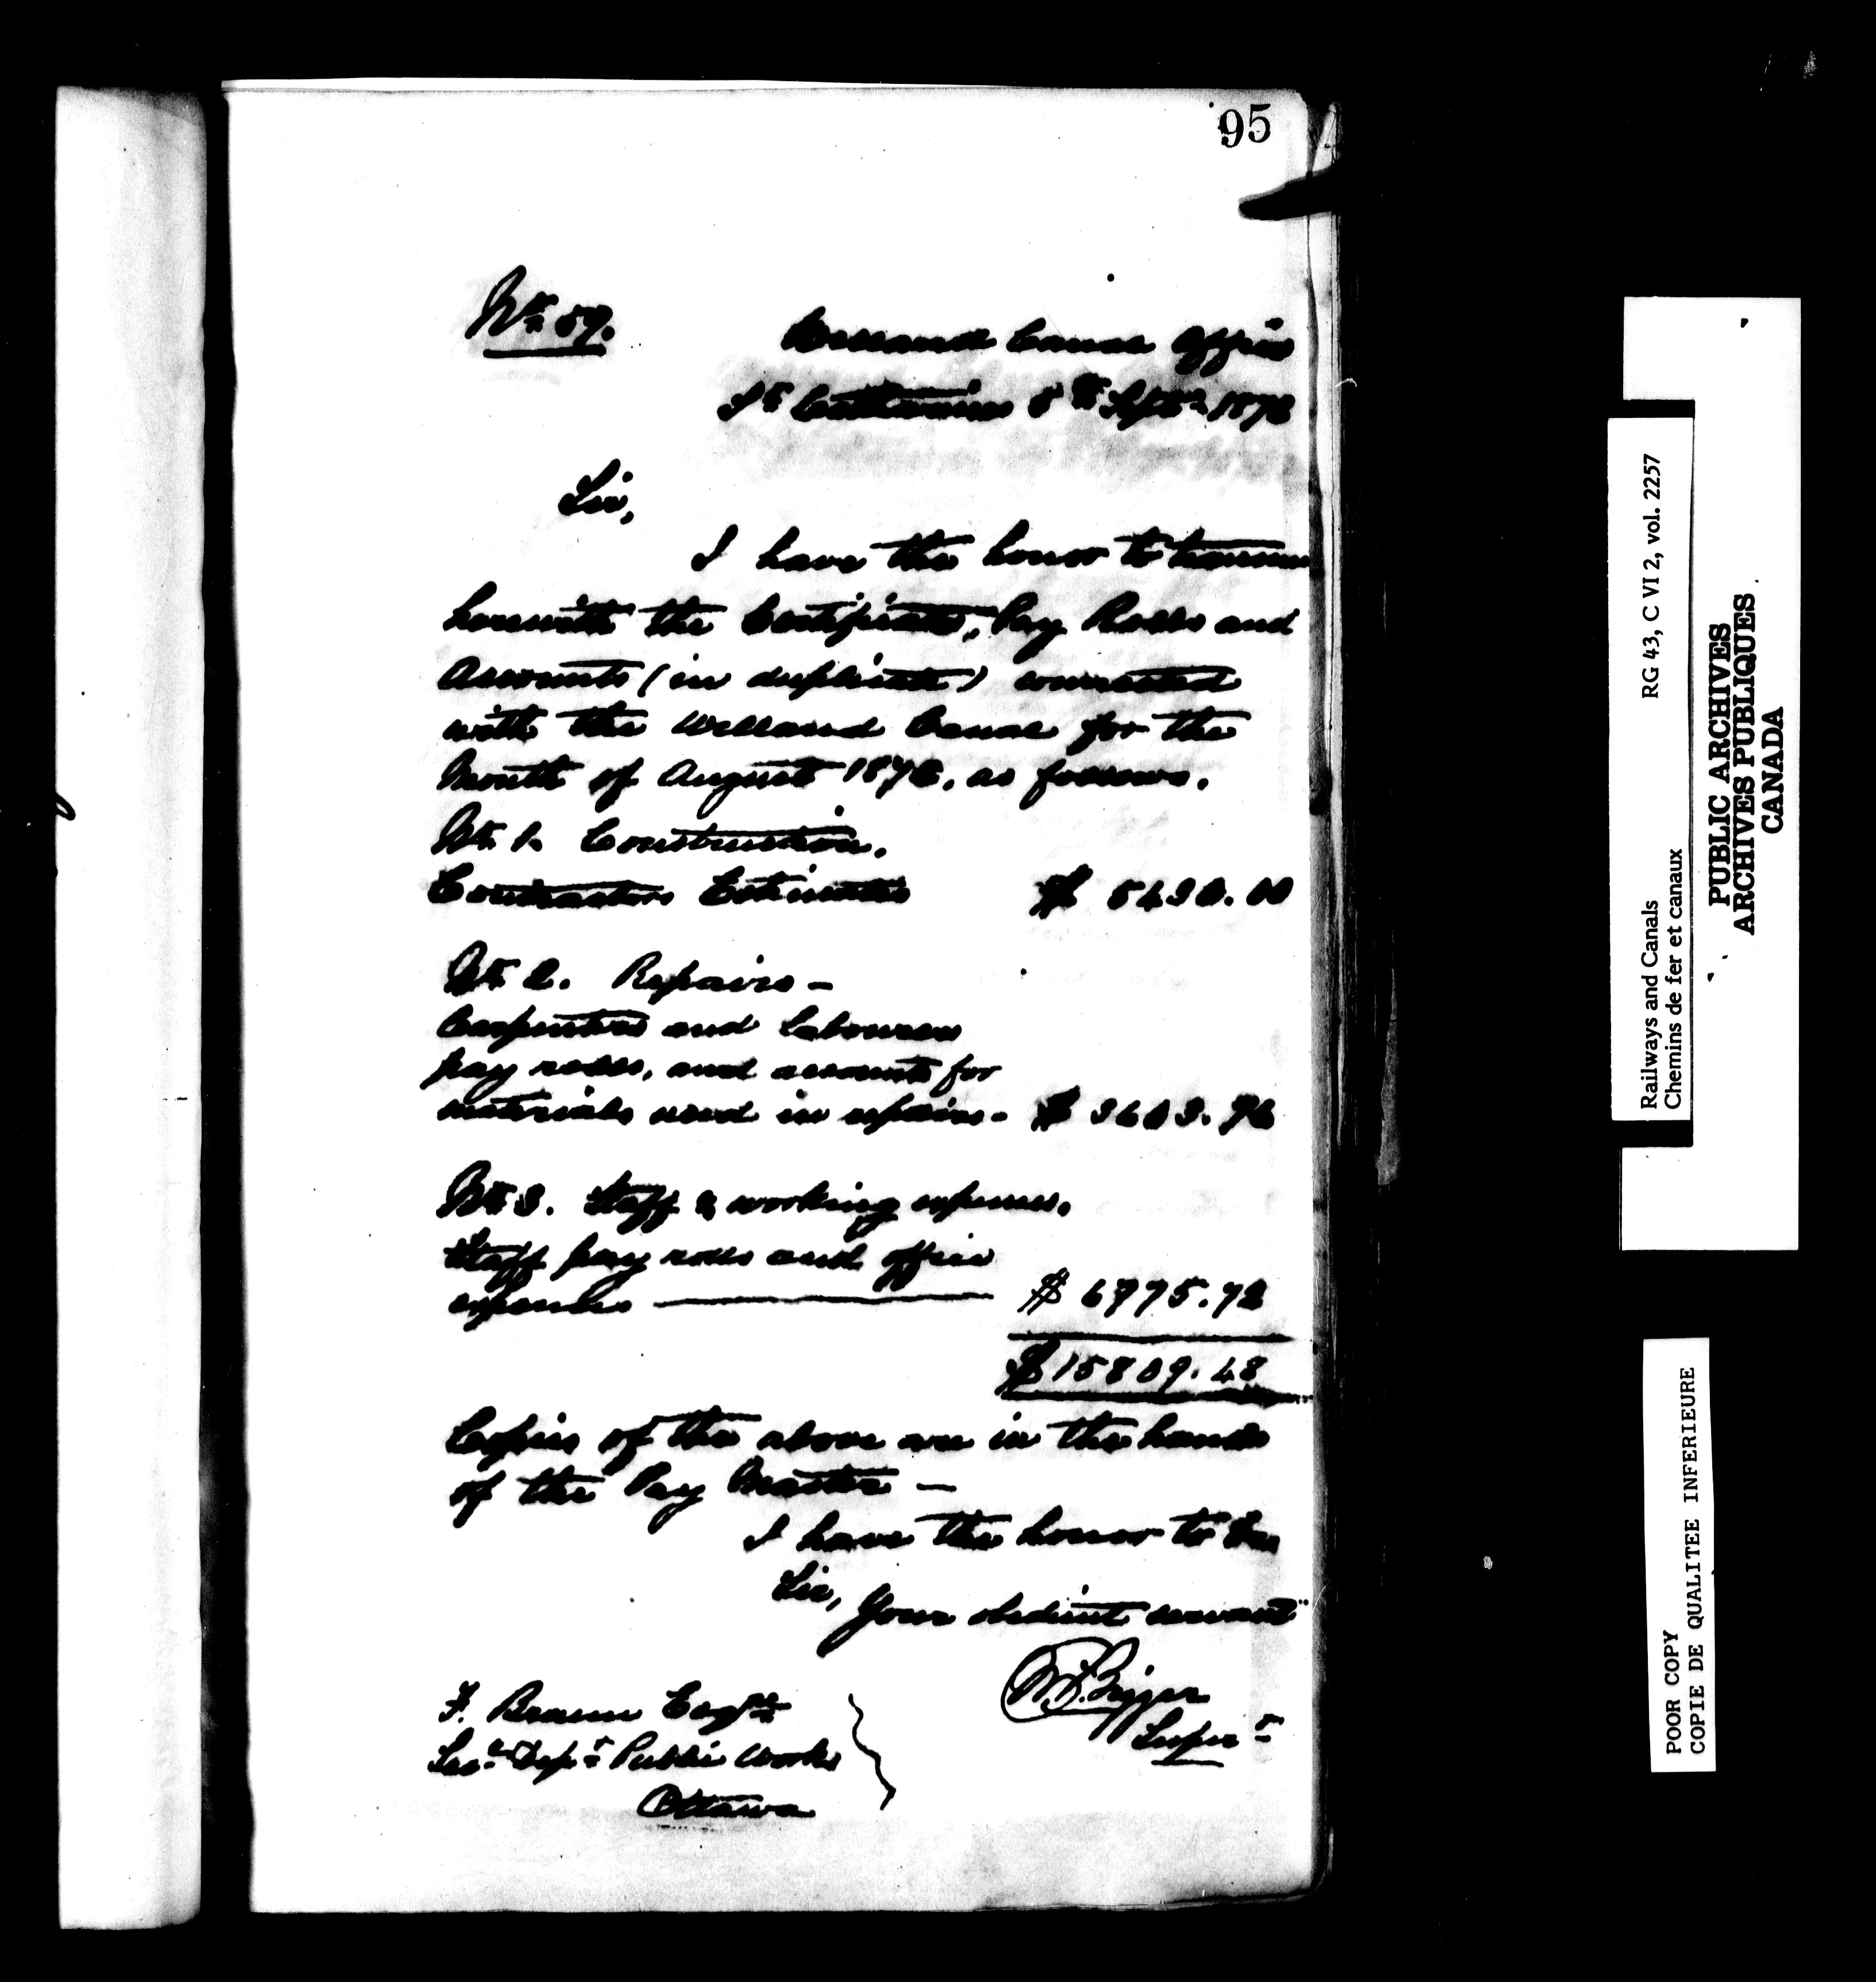 95
No 57.
Welland Canal Office
St Catharines 8th Septr 1876
Sir,
I have the honor to
herewith the Certificate, Pay Rolls and
Accounts (in duplicate) connected
with the Welland Canal for the
Month of August 1876, as follows.
No 1. Construction.
Contractors Estimates $ 5430.00
No 2. Repairs -
Carpenters and Labourers
pay rolls, and accounts for
materials used in repairs - $ 3603.76
No 3. Staff & working expenses.
Staff pay rolls and office
expenses $ 6775.72
$ 15809.48
Copies of the above are in the hands
of the Pay Master —
I have the honor to be
Sir,
Your obedient servant
Bigger
Supert
F. Braun Esqre
Secy Dept Public Works
Ottawa
Railways and Canals RG 43, C VI 2, vol. 2257
Chemins de fer et canaux
PUBLIC ARCHIVES
ARCHIVES PUBLIQUES
CANADA
POOR COPY
COPIE DE QUALITEE INFERIEURE